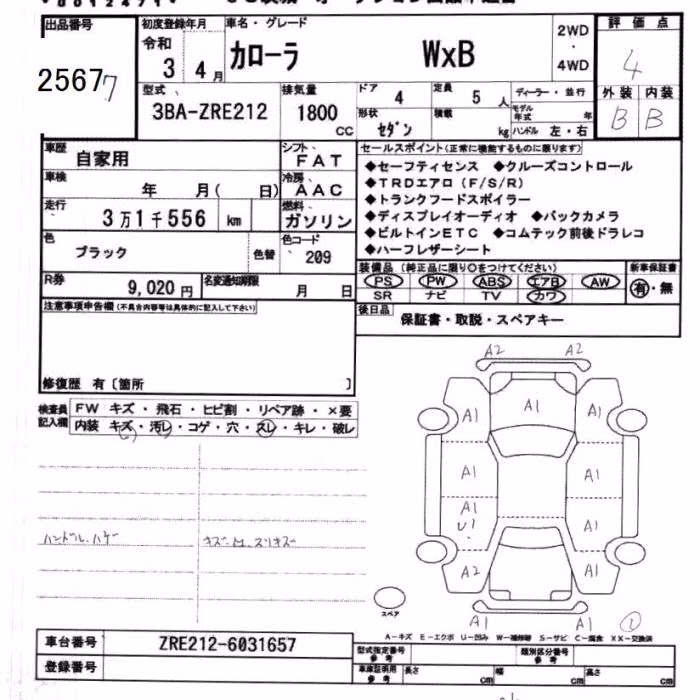 出品番号 初度登録年月 車名・グレード 2WD・4WD 評価点
25677 令和 3年 4月 カローラ WxB 4
型式 排気量 ドア 4 定員 5人 ディーラー・並行 外装 内装
3BA-ZRE212 1800cc 形状 セダン 積載 kg モデル年式 年 ハンドル 左・右 B B
車歴 自家用 シフト FAT セールスポイント(正常に機能するものに限ります)
車検 年 月( 日) 冷房 AAC ◆セーフティセンス ◆クルーズコントロール
◆TRDエアロ(F/S/R)
走行 3万1千556km 燃料 ガソリン ◆トランクフードスポイラー
◆ディスプレイオーディオ ◆バックカメラ
色 ブラック 色替 色コード 209 ◆ビルトインETC ◆コムテック前後ドラレコ
◆ハーフレザーシート
R券 9,020円 名変通知期限 月 日 装備品(純正品に限り○をつけてください) 新車保証書
PS PW ABS エアB AW 有・無
SR ナビ TV カワ
注意事項申告欄(不具合内容等は具体的に記入して下さい) 後日品 保証書・取説・スペアキー
修復歴 有〔箇所 〕
検査員記入欄 FW キズ・飛石・ヒビ割・リペア跡・×要
内装 キズ・汚レ・コゲ・穴・スレ・キレ・破レ
A2 A2
A1 A1 A1
A1 A1
A1 U1 A1
A2 A1
A1 A1 1
ハンドル、ハゲ
スペア
A-キズ E-エクボ U-凹み W-補修跡 S-サビ C-腐食 XX-交換済
車台番号 ZRE212-6031657 型式指定番号 参考 類別区分番号 参考
登録番号 車庫証明用 参考 長さ cm 幅 cm 高さ cm